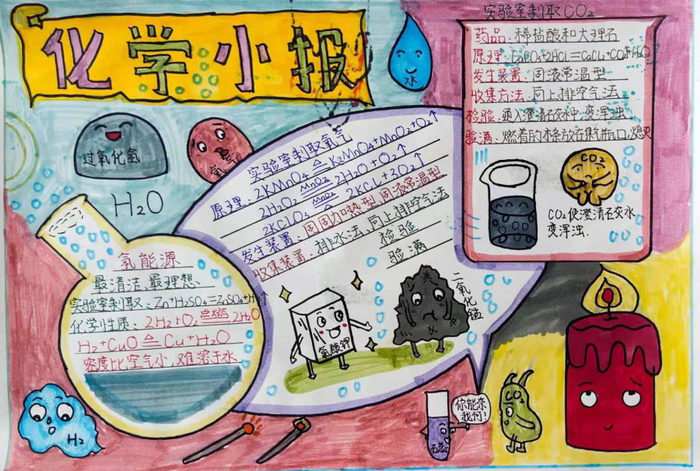 化学小报
水
过氧化氢
H₂O
实验室制取氧气
原理: 2KMnO₄ ≜ K₂MnO₄+MnO₂+O₂↑
2H₂O₂ MnO₂ 2H₂O+O₂↑
2KClO₃ MnO₂ 2KCl+3O₂↑
发生装置: 固固加热型 固液常温型
收集装置: 排水法, 向上排空气法
检验
验满
氯酸钾
二氧化锰
氢能源
最清洁, 最理想.
实验室制取: Zn+H₂SO₄=ZnSO₄+H₂↑
化学性质: 2H₂+O₂ 点燃 2H₂O
H₂+CuO ≜ Cu+H₂O
密度比空气小, 难溶于水
H₂
你能来我们!
实验室制取CO₂
药品: 稀盐酸和大理石
原理:
发生装置: 固液常温型
收集方法: 向上排空气法
检验: 通入澄清石灰水中, 变浑浊
验满: 燃着的木条放在集气瓶口, 熄灭
CO₂
CO₂使澄清石灰水
变浑浊.